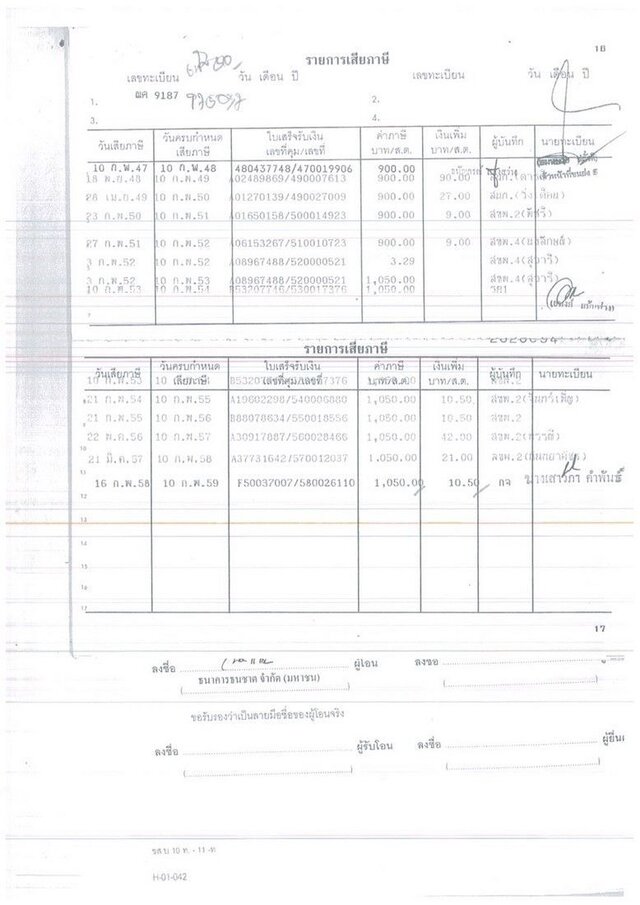 18
รายการเสียภาษี
เลขทะเบียน วัน เดือน ปี เลขทะเบียน วัน เดือน ปี
1. ผค 9187 2.
3. 4.
วันเสียภาษี วันครบกำหนดเสียภาษี ใบเสร็จรับเงิน เลขที่คุม/เลขที่ ค่าภาษี บาท/ส.ต. เงินเพิ่ม บาท/ส.ต. ผู้บันทึก นายทะเบียน
10 ก.พ.47 10 ก.พ.48 480437748/470019906 900.00
18 พ.ย.48 10 ก.พ.49 A02489869/490007613 900.00 90.00
28 เม.ย.49 10 ก.พ.50 A01270139/490027009 900.00 27.00
23 ก.พ.50 10 ก.พ.51 A01650158/500014923 900.00 9.00 สขพ.2
27 ก.พ.51 10 ก.พ.52 A06153267/510010723 900.00 9.00 สขพ.4
3 ก.พ.52 10 ก.พ.52 A08967488/520000521 3.29 สขพ.4(สุขารี)
3 ก.พ.52 10 ก.พ.53 A08967488/520000521 1,050.00 สขพ.4(สุขารี)
10 ก.พ.53 10 ก.พ.54 B53207746/530017376 1,050.00
รายการเสียภาษี
วันเสียภาษี วันครบกำหนดเสียภาษี ใบเสร็จรับเงิน เลขที่คุม/เลขที่ ค่าภาษี บาท/ส.ต. เงินเพิ่ม บาท/ส.ต. ผู้บันทึก นายทะเบียน
10 ก.พ.53
21 ก.พ.54 10 ก.พ.55 A19602298/540006880 1,050.00 10.50 สขพ.2
21 ก.พ.55 10 ก.พ.56 B88078634/550018556 1,050.00 10.50 สขพ.2
22 พ.ค.56 10 ก.พ.57 A30917887/560028466 1,050.00 42.00 สขพ.2
21 มี.ค.57 10 ก.พ.58 A37731642/570012037 1,050.00 21.00 สขพ.2
16 ก.พ.58 10 ก.พ.59 F50037007/580026110 1,050.00 10.50 กจ นางเสาวภา คำพันธ์
12
13
14
15
16
17
17
ลงชื่อ ผู้โอน ลงชื่อ
ธนาคารธนชาต จำกัด (มหาชน)
ขอรับรองว่าเป็นลายมือชื่อของผู้โอนจริง
ลงชื่อ ผู้รับโอน ลงชื่อ ผู้ยื่น
H-01-042